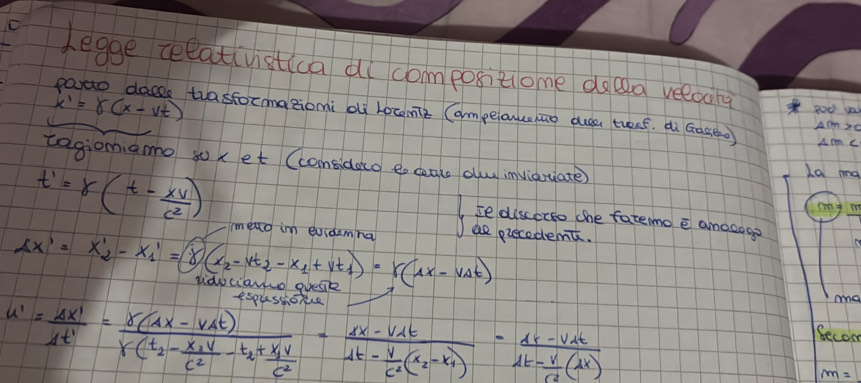 Legge relativistica di composizione della velocità
parto dalle trasformazioni di Lorentz (ampliamento delle trasf. di Galileo)
x' = γ(x - vt)
ragioniamo su x e t (considero le altre due invariate)
t' = γ(t - xv/c²)
Il discorso che faremo è analogo al precedente.
metto in evidenza
Δx' = x₂' - x₁' = γ(x₂ - vt₂ - x₁ + vt₁) = γ(Δx - vΔt)
riduciamo queste
espressione
u' = Δx'/Δt' = γ(Δx - vΔt)/γ(t₂ - x₂v/c² - t₁ + x₁v/c²) = Δx - vΔt/Δt - v/c²(x₂ - x₁) = Δx - vΔt/Δt - v/c²(Δx)
La ma
m = m
ma
Secon
m =